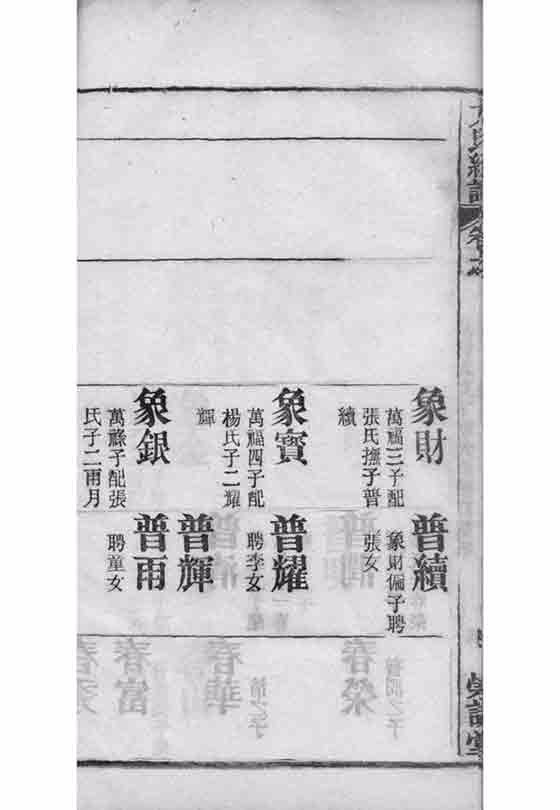 象財
萬福三子配
張氏撫子普
續
象寳
萬福四子配
楊氏子二耀
輝
象銀
萬祿子配張
氏子二雨月
普續
象財徧子聘
張女
普耀
聘李女
普輝
普雨
聘童女